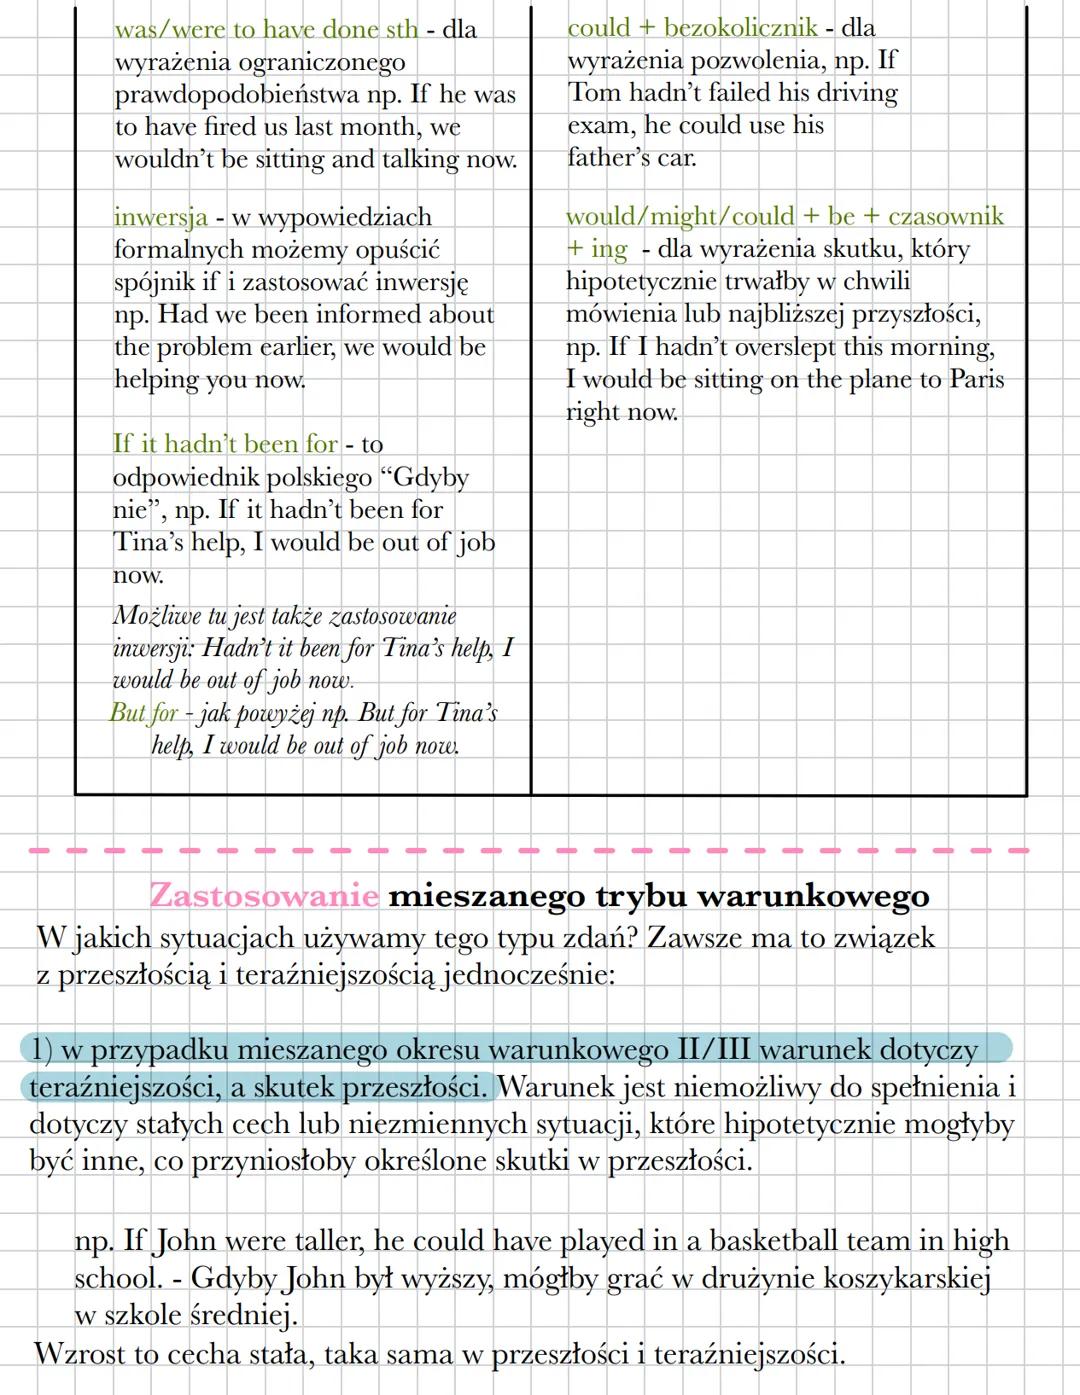 was/were to have done sth - dla
wyrażenia ograniczonego
prawdopodobieństwa np. If he was
to have fired us last month, we
wouldn't be sitting and talking now.
inwersja - w wypowiedziach
formalnych możemy opuścić
spójnik if i zastosować inwersję
np. Had we been informed about
the problem earlier, we would be
helping you now.
If it hadn't been for - to
odpowiednik polskiego “Gdyby
nie”, np. If it hadn't been for
Tina's help, I would be out of job
now.
Możliwe tu jest także zastosowanie
inwersji: Hadn't it been for Tina's help, I
would be out of job now.
But for - jak powyżej np. But for Tina's
help, I would be out of job now.
could + bezokolicznik - dla
wyrażenia pozwolenia, np. If
Tom hadn't failed his driving
exam, he could use his
father's car.
would/might/could + be + czasownik
+ ing - dla wyrażenia skutku, który
hipotetycznie trwałby w chwili
mówienia lub najbliższej przyszłości,
np. If I hadn't overslept this morning,
I would be sitting on the plane to Paris
right now.
Zastosowanie mieszanego trybu warunkowego
W jakich sytuacjach używamy tego typu zdań? Zawsze ma to związek
z przeszłością i teraźniejszością jednocześnie:
1) w przypadku mieszanego okresu warunkowego II/III warunek dotyczy
teraźniejszości, a skutek przeszłości. Warunek jest niemożliwy do spełnienia i
dotyczy stałych cech lub niezmiennych sytuacji, które hipotetycznie mogłyby
być inne, co przyniosłoby określone skutki w przeszłości.
np. If John were taller, he could have played in a basketball team in high
school. - Gdyby John był wyższy, mógłby grać w drużynie koszykarskiej
w szkole średniej.
Wzrost to cecha stała, taka sama w przeszłości i teraźniejszości.